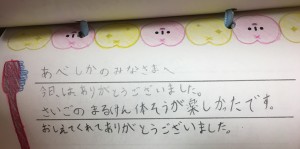 あべしかのみなさまへ
今日は、ありがとうございました。
さいごのまるけん体そうが楽しかったです。
おしえてくれてありがとうございました。